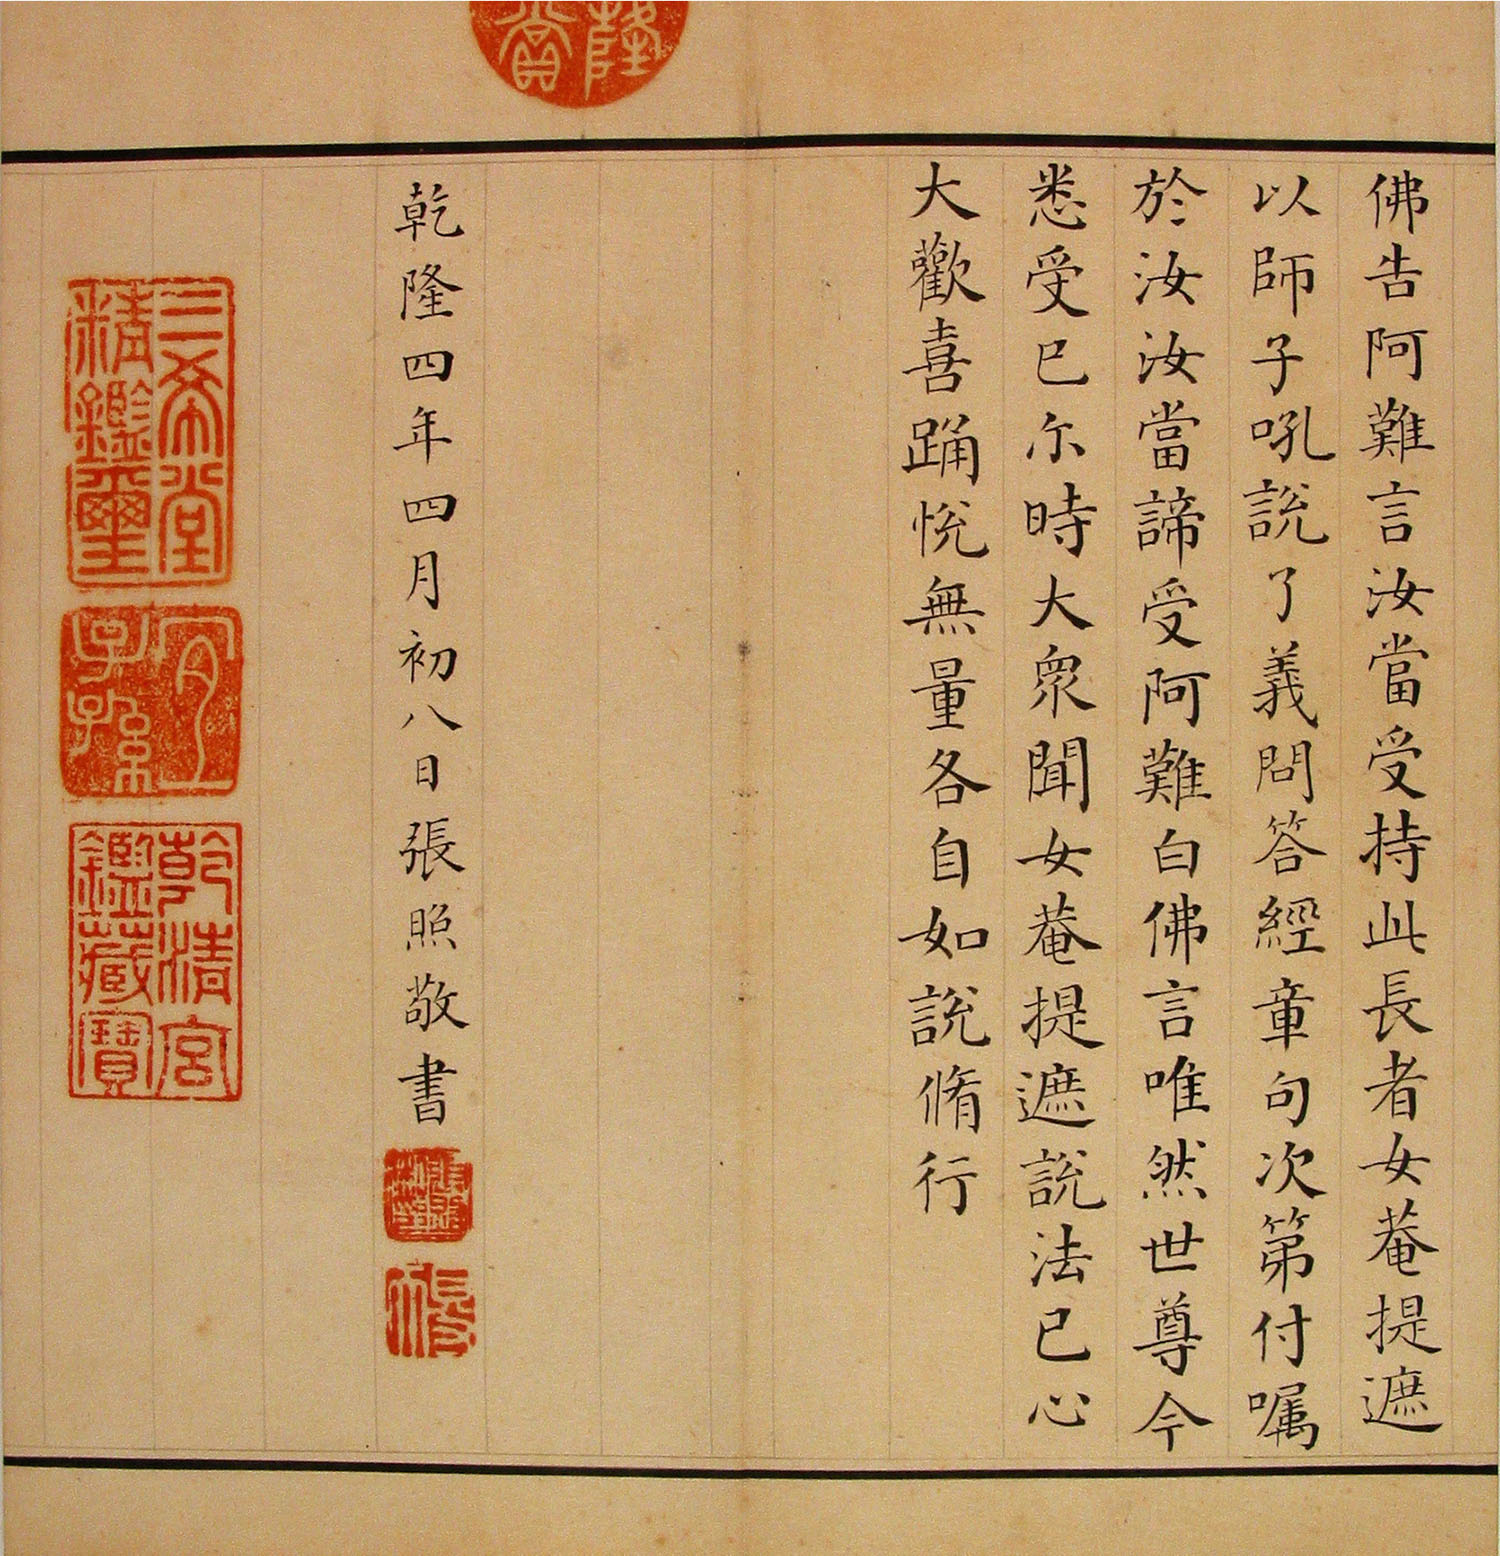 佛告阿難言汝當受持此長者女菴提遮
以師子吼說了義問答經章句次第付囑
於汝汝當諦受阿難白佛言唯然世尊今
悉受已尔時大衆聞女菴提遮說法已心
大歡喜踊悅無量各自如說脩行
乾隆四年四月初八日張照敬書
三希堂
精鑑璽
宜
子孫
乾清宮
鑑藏寶